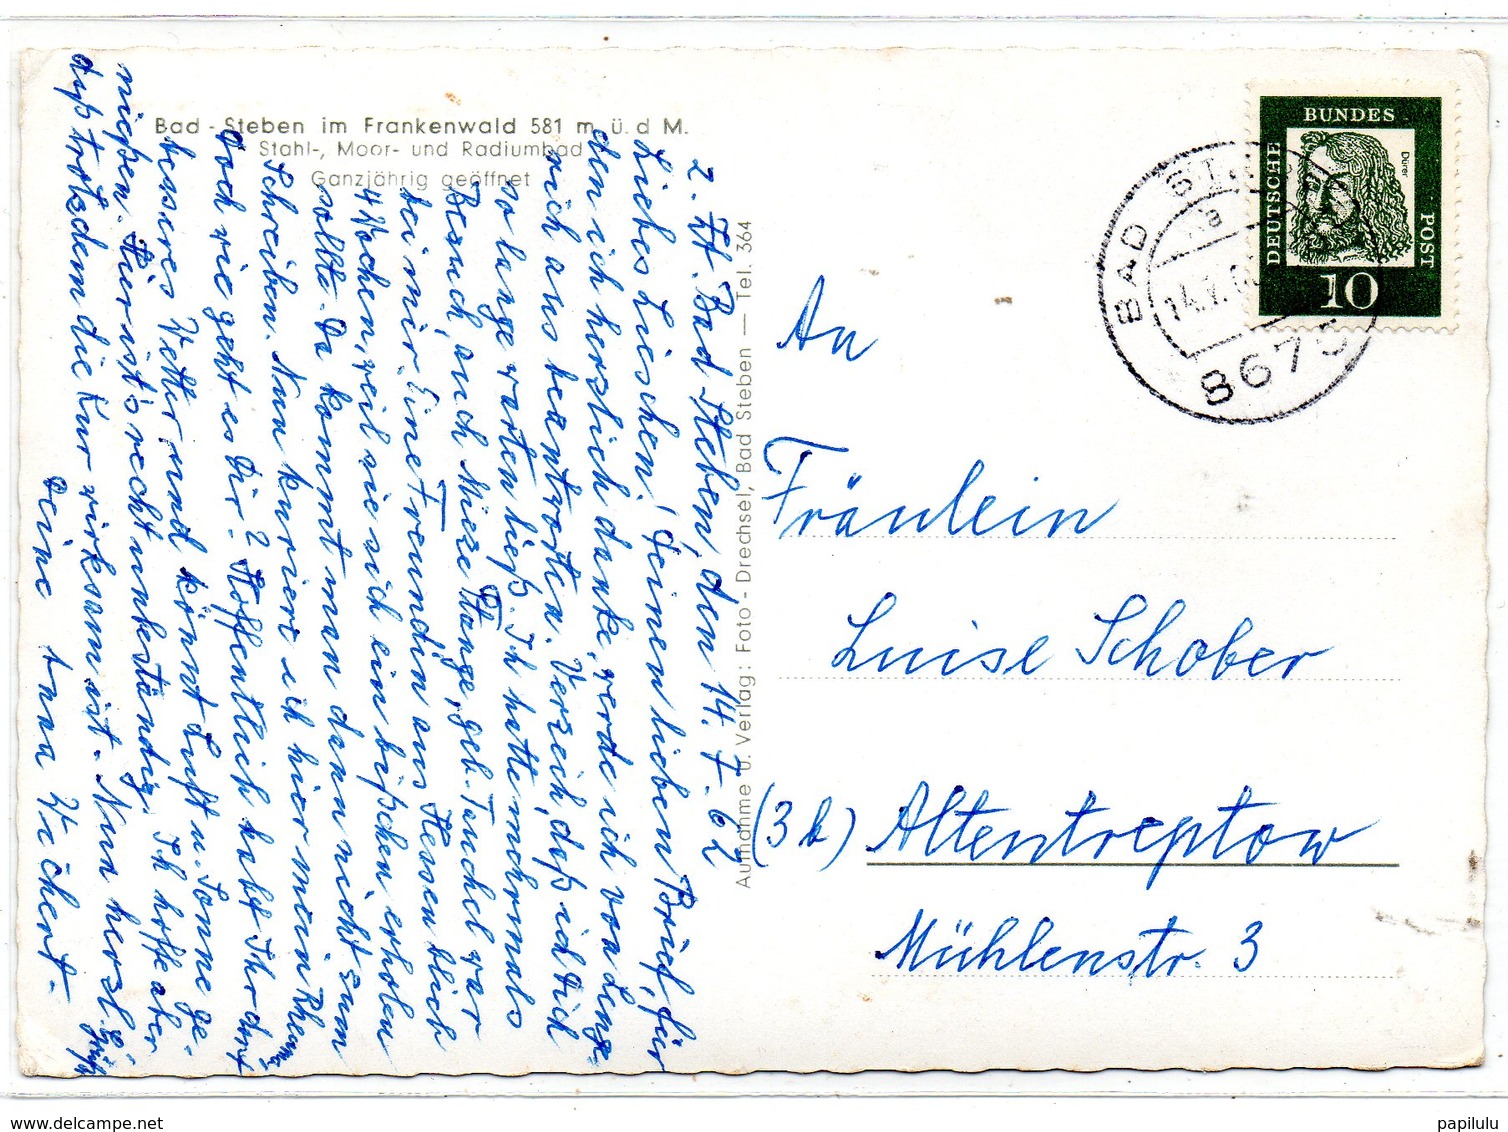 Bad - Steben im Frankenwald 581 m. ü. d M.
Stahl-, Moor- und Radiumbad
Ganzjährig geöffnet
z. Zt. Bad Steben, den 14.7.62
Liebes Lieschen! Deinen lieben Brief, für
den ich herzlich danke, werde ich von Lenge-
rich aus beantworten. Verzeih, daß ich Dich
so lange warten ließ. Ich hatte mehrmals
Besuch, auch Mieze Stange, geb. Tauchel war
bei mir. Eine Freundin aus Hessen blieb
4 Wochen, weil sie sich ein bißchen erholen
sollte. Da kommt man dann nicht zum
Schreiben. Nun kuriere ich hier mein Rheuma
Doch wie geht es Dir? Hoffentlich habt Ihr dort
besseres Wetter und könnt Luft u. Sonne ge-
nießen. Hier ist's recht unbeständig. Ich hoffe aber
daß trotzdem die Kur wirksam ist. Nun herzl.
Grüße
Deine Anna Wichert.
Aufnahme u. Verlag: Foto - Drechsel, Bad Steben — Tel. 364
DEUTSCHE
BUNDES
POST
Dürer
10
BAD ST
a
14.7.6
8675
An
Fräulein
Luise Schober
(3b) Altentreptow
Mühlenstr. 3
www.delcampe.net
papilulu